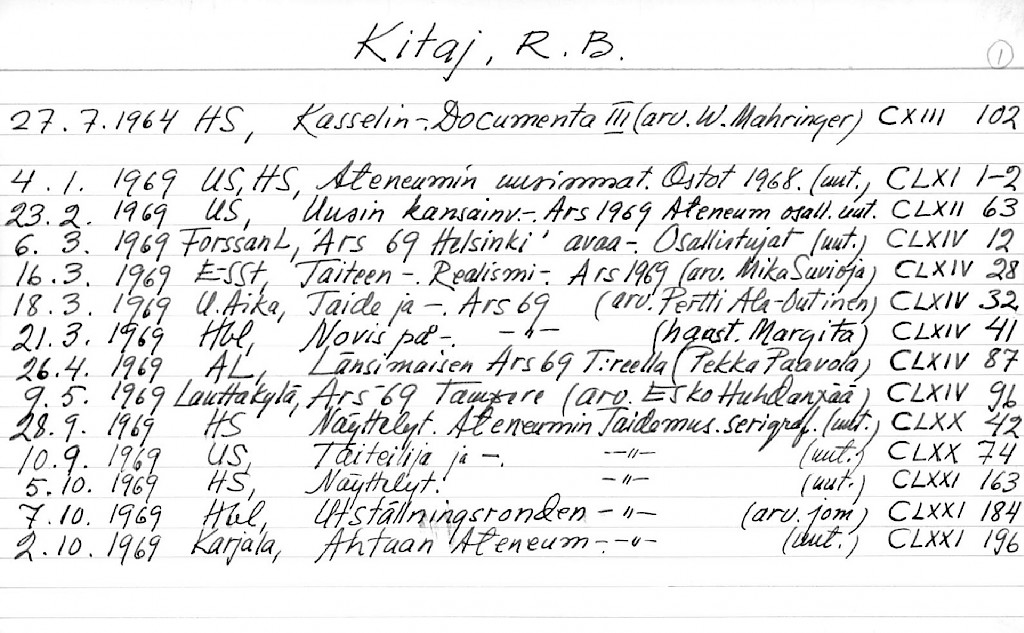 Kitaj, R. B.
1
27. 7. 1964 HS, Kasselin -. Documenta III (arv. W. Mahringer) CXIII 102
4. 1. 1969 US, HS, Ateneumin uusimmat. Ostot 1968. (uut., CLXI 1-2
23. 2. 1969 US, Uusin kansainv. -. Ars 1969 Ateneum osall. uut. CLXII 63
6. 3. 1969 Forssan L, 'Ars 69 Helsinki' avaa -. Osallistujat (uut.) CLXIV 12
16. 3. 1969 E-SSt, Taiteen -. Realismi -. Ars 1969 (arv. Mika Suvioja) CLXIV 28
18. 3. 1969 U. Aika, Taide ja -. Ars 69 (arv. Pertti Ala-Outinen) CLXIV 32
21. 3. 1969 Hbl, Novis på -. -"- (haast. Margita) CLXIV 41
26. 4. 1969 AL, Länsimaisen Ars 69 T:reella (Pekka Paavola) CLXIV 87
9. 5. 1969 Lauttakylä, Ars -69 Tampere (arv. Esko Huhdanpää) CLXIV 96
28. 9. 1969 HS Näyttelyt. Ateneumin Taidemus. serigraf. (uut.) CLXX 42
10. 9. 1969 US, Taiteilija ja -. -"- (uut.) CLXX 74
5. 10. 1969 HS, Näyttelyt. -"- (uut.) CLXXI 163
7. 10. 1969 Hbl, Utställningsronden -"- (arv. jom) CLXXI 184
2. 10. 1969 Karjala, Ahtaan Ateneum -. -"- (uut.) CLXXI 196